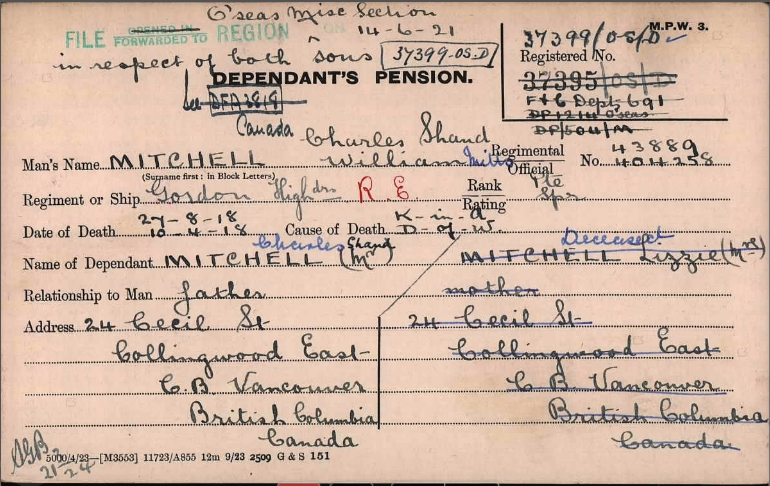 O'seas Misc Section
FILE OPENED IN FORWARDED TO REGION ON 14-6-21
M.P.W. 3.
in respect of both sons 37399-OS-D
37399/OS/D
Registered No.
DEPENDANT'S PENSION.
37395/OS/D
See DFA2818
F&G Dept 691
DP1214 O'seas
Canada
DP/504/M
Charles Shand
Man's Name MITCHELL William Regimental No. 43889
(Surname first: in Block Letters) Official 404258
Regiment or Ship Gordon Highdrs R.E Rank Pte
Rating Spr
Date of Death 27-8-18 Cause of Death K-in-a
10-4-18 D-of-W
Charles Shand Deceased
Name of Dependant MITCHELL (Mr) MITCHELL Lizzie (Mrs)
Relationship to Man father mother
Address 24 Cecil St 24 Cecil St
Collingwood East Collingwood East
C.B. Vancouver C.B. Vancouver
British Columbia British Columbia
Canada Canada
5000/4/23—[M3553] 11723/A855 12m 9/23 2509 G & S 151